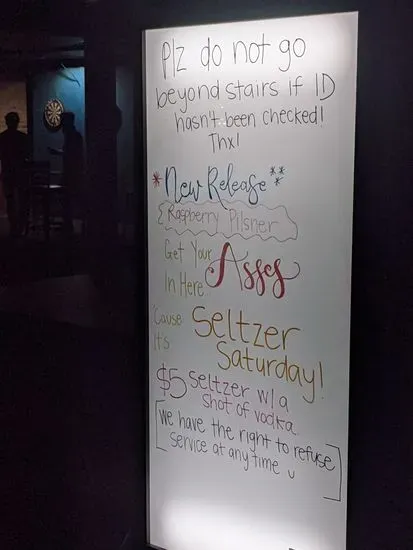 Plz do not go
beyond stairs if ID
hasn't been checked!
Thx!
*New Release**
Raspberry Pilsner
Get Your
In Here Asses
'Cause
It's Seltzer
Saturday!
$5 seltzer w/a
shot of vodka.
[we have the right to refuse
service at any time ]